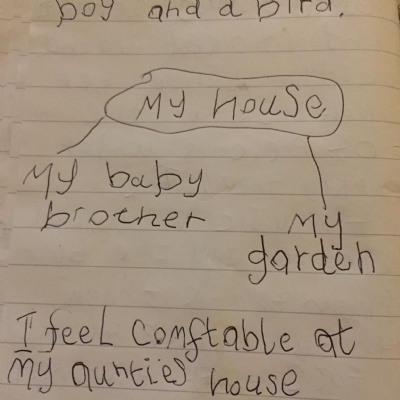 boy and a bird.
My house
My baby
brother
My
garden
I feel comftable at
my aunties house